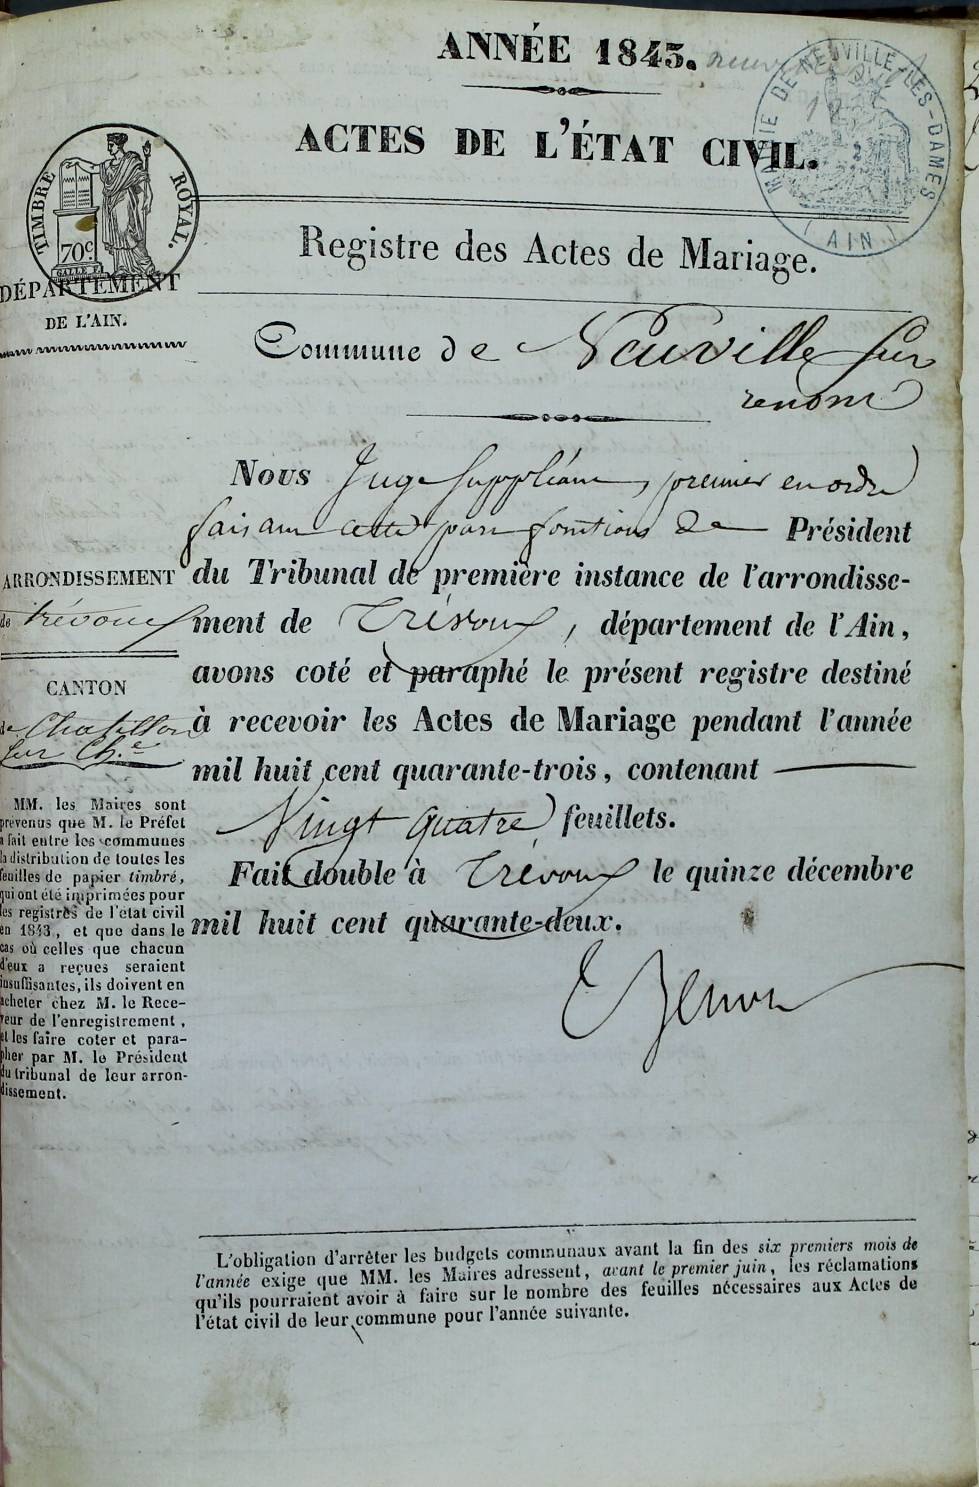 ANNÉE 1843.
ACTES DE L'ÉTAT CIVIL.
MAIRIE DE NEUVILLE-LES-DAMES
(AIN)
TIMBRE ROYAL.
70c
DÉPARTEMENT
DE L'AIN.
Registre des Actes de Mariage.
Commune de Neuville sur
renom
Nous Juge suppléant, premier en ordre
faisant cette part fonctions de Président
ARRONDISSEMENT
de trévoux
du Tribunal de première instance de l'arrondisse-
ment de Trévoux, département de l'Ain,
avons coté et paraphé le présent registre destiné
à recevoir les Actes de Mariage pendant l'année
mil huit cent quarante-trois, contenant
Vingt quatre feuillets.
Fait double à Trévoux le quinze décembre
mil huit cent quarante-deux.
CANTON
de Chatillon
sur Ch.e
MM. les Maires sont
prévenus que M. le Préfet
a fait entre les communes
la distribution de toutes les
feuilles de papier timbré,
qui ont été imprimées pour
les registres de l'état civil
en 1843, et que dans le
cas où celles que chacun
d'eux a reçues seraient
insuffisantes, ils doivent en
acheter chez M. le Rece-
veur de l'enregistrement,
et les faire coter et para-
pher par M. le Président
du tribunal de leur arron-
dissement.
L'obligation d'arrêter les budgets communaux avant la fin des six premiers mois de
l'année exige que MM. les Maires adressent, avant le premier juin, les réclamations
qu'ils pourraient avoir à faire sur le nombre des feuilles nécessaires aux Actes de
l'état civil de leur commune pour l'année suivante.